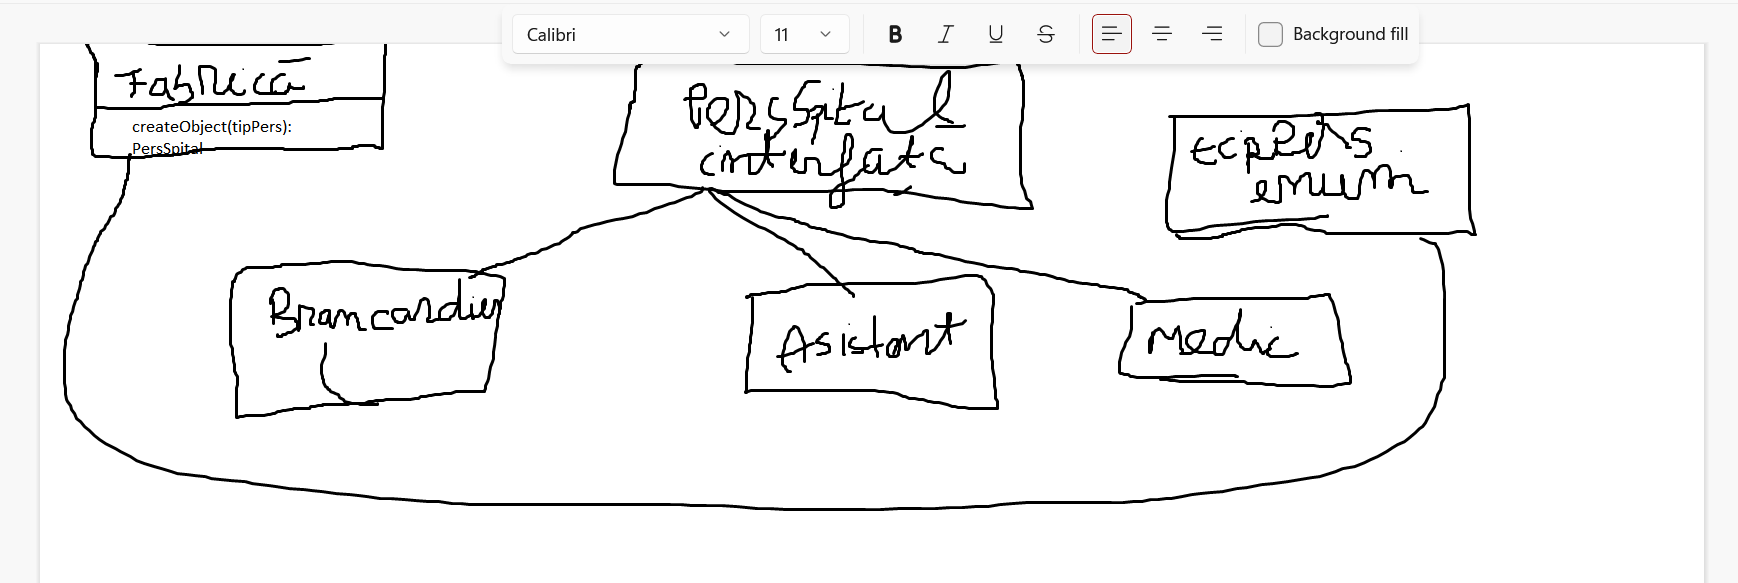 Calibri
11
B I U S
Background fill
Fabrică
createObject(tipPers):
PersSpital
PersSpital
interfata
tipPers
enum
Brancardier
Asistant
Medic